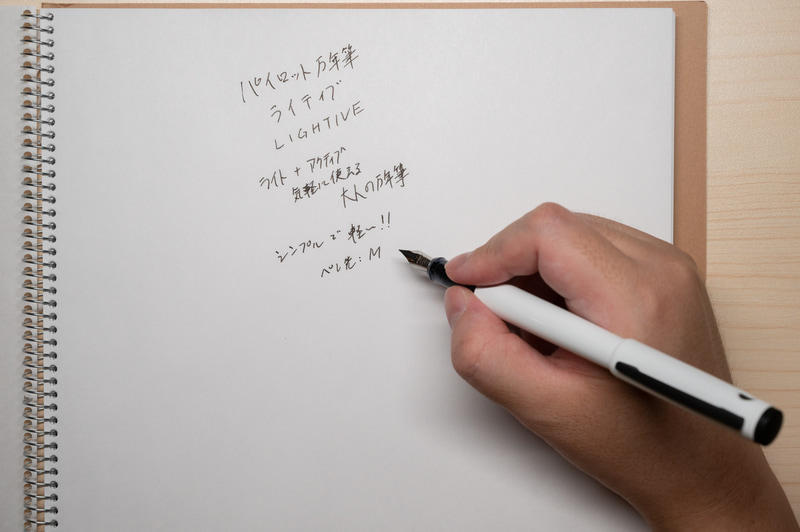 パイロット万年筆
ライティブ
LIGHTIVE
ライト + アクティブ
気軽に使える
大人の万年筆
シンプルで軽い!!
ペン先:M